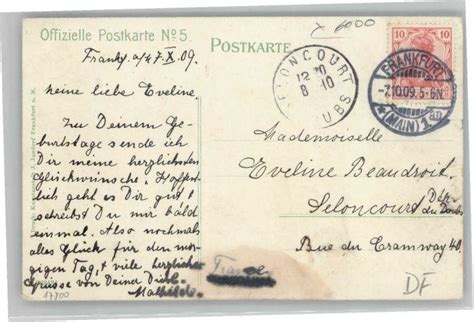 Offizielle Postkarte Nº 5.
Frankf. a/M 7.X.09.
Meine liebe Eveline
Zu Deinem Ge-
burtstage sende ich
Dir meine herzlichsten
Glückwünsche. Hoffent-
lich geht es Dir gut &
schreibst Du mir bald
einmal. Also nochmals
alles Glück für den mor-
gigen Tag, & viele herzliche
Grüsse von Deiner Dich
Mathilde
17/00
POSTKARTE
6000
SELONCOURT
12 10
8 10
DOUBS
10 10
FRANKFURT
-7.10.09.5-6N.
(MAIN) 1
Mademoiselle
Eveline Beaudroit
Seloncourt
du Doubs
Rue du Tramway 40
DF